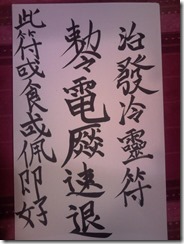 治發冷靈符
勅令電厫速退
此符或食或佩即好